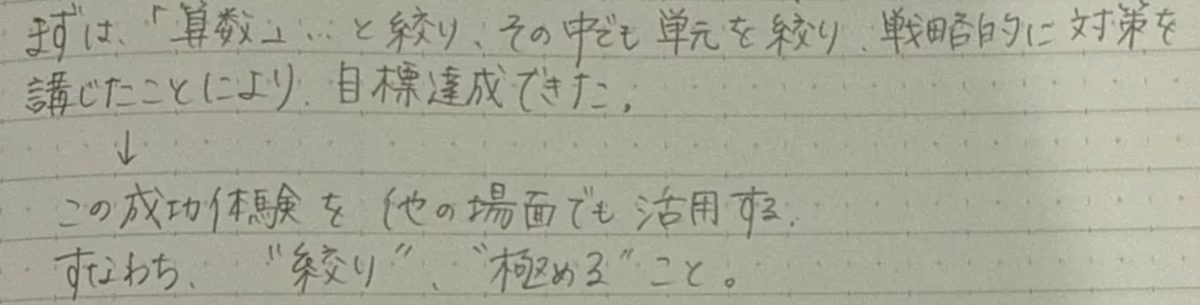 まずは、「算数」…と絞り、その中でも単元を絞り、戦略的に対策を
講じたことにより、目標達成できた。
↓
この成功体験を他の場面でも活用する。
すなわち、“絞り”、“極める”こと。